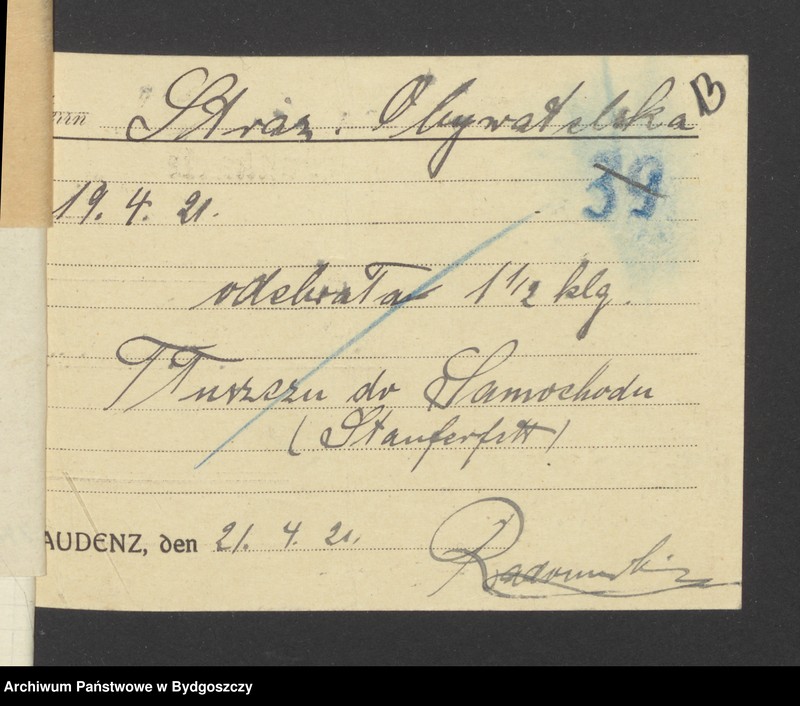 Straż. Obywatelska B
39
19. 4. 21.
odebrała 1 1/2 klg.
Tłuszczu do Samochodu
(Stauferfett)
AUDENZ, den 21. 4. 21.
Archiwum Państwowe w Bydgoszczy